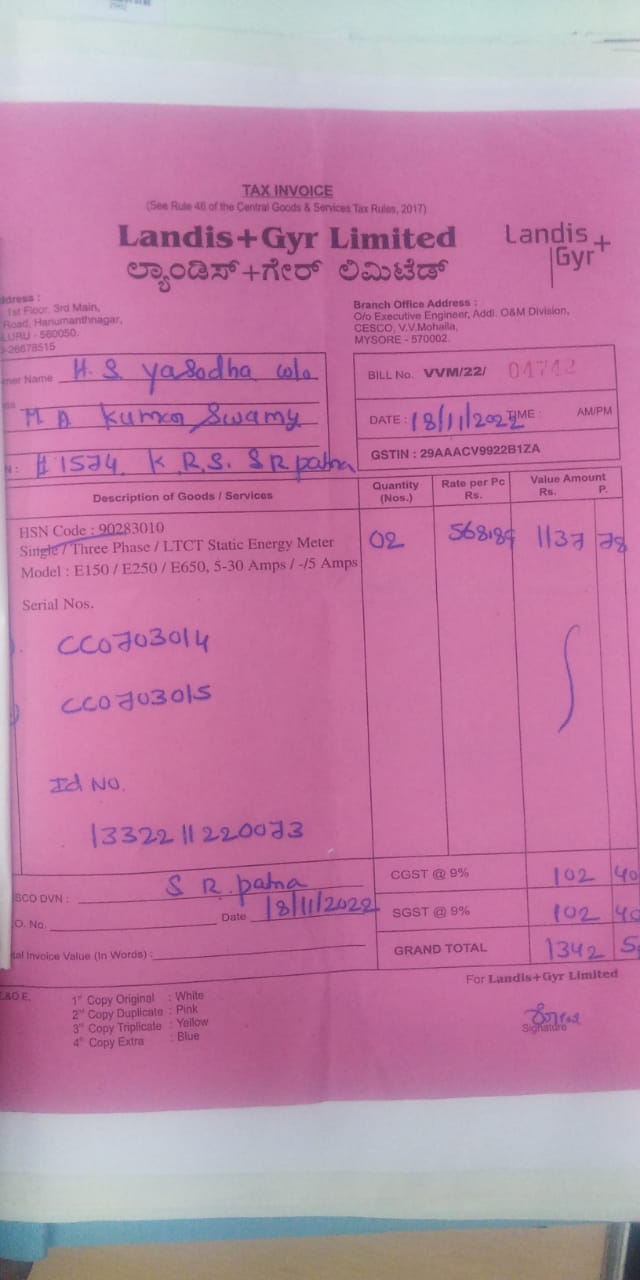 TAX INVOICE
(See Rule 46 of the Central Goods & Services Tax Rules, 2017)
Landis+Gyr Limited
ಲ್ಯಾಂಡಿಸ್+ಗೇರ್ ಲಿಮಿಟೆಡ್
Landis+
Gyr
ddress :
1st Floor, 3rd Main,
Road, Hanumanthnagar,
LURU - 560050.
-26678515
Branch Office Address :
O/o Executive Engineer, Addl. O&M Division,
CESCO, V.V.Mohalla,
MYSORE - 570002.
mer Name H. S Yasodha w/o
M A Kumar Swamy
N : # 1574. K R.S. S R patna
BILL No. VVM/22/ 04742
DATE : 18/11/2022 TIME : AM/PM
GSTIN : 29AAACV9922B1ZA
Description of Goods / Services
Quantity (Nos.)
Rate per Pc Rs.
Value Amount Rs. P.
HSN Code : 90283010
Single / Three Phase / LTCT Static Energy Meter
Model : E150 / E250 / E650, 5-30 Amps / -/5 Amps
02 568.89 1137 78
Serial Nos.
CC0703014
CC0703015
Id No.
1332211220073
SCO DVN : S R. patna
O. No. Date 18/11/2022
tal Invoice Value (In Words) :
CGST @ 9% 102 40
SGST @ 9% 102 40
GRAND TOTAL 1342
For Landis+Gyr Limited
Signature
E&O.E.
1st Copy Original : White
2nd Copy Duplicate : Pink
3rd Copy Triplicate : Yellow
4th Copy Extra : Blue